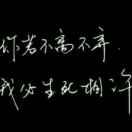 你若不离不弃.
我必生死相许